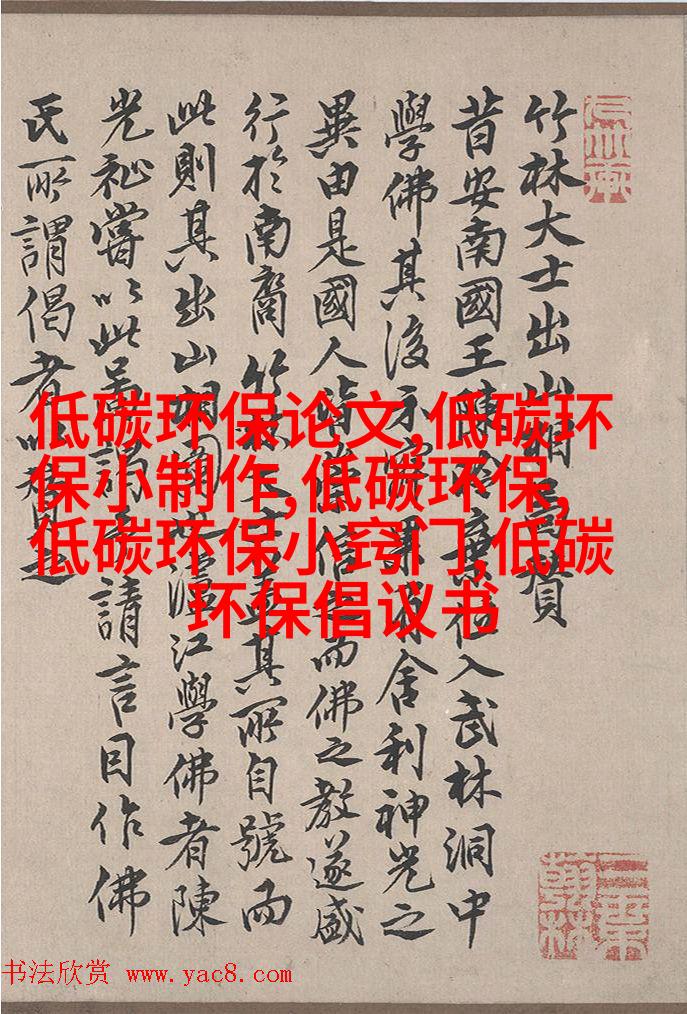 竹林大士出山相贊
昔安南國王陳棄位入武林洞中
學佛其後示舍利神光之
異由是國人皆信而佛之教遂盛
行於南裔竹林大士其所自號而
此則其出山相江學佛者陳
光祉嘗以此請言因作佛
氏所謂偈者
低碳环保论文,低碳环
保小制作,低碳环保,
低碳环保小窍门,低碳
环保倡议书
书法欣赏 www.yac8.com